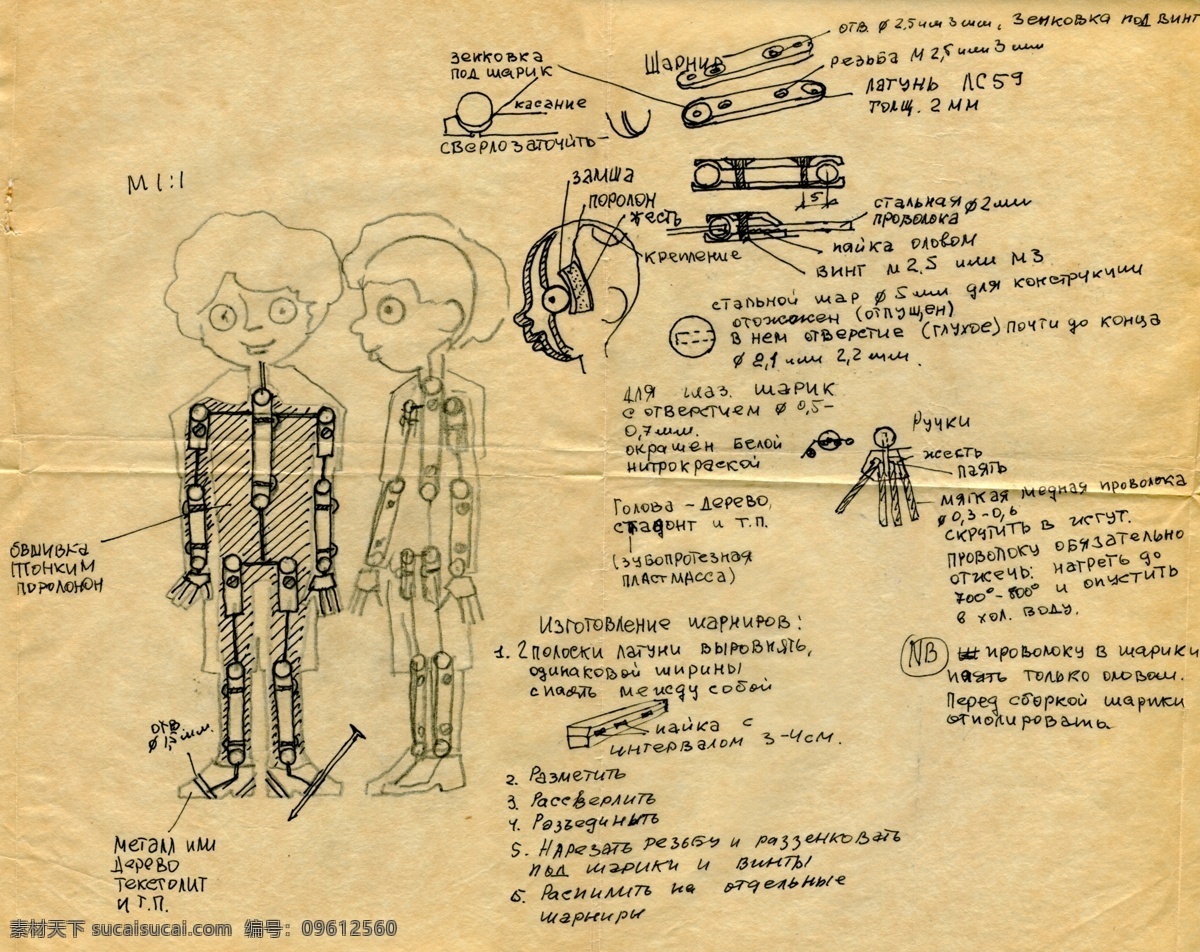 отв. ø 2,5 или 3 мм, зенковка под винт
Шарнир
резьба М 2,5 или 3 мм
латунь ЛС59
толщ. 2 мм
зенковка
под шарик
касание
сверло заточить
М 1:1
замша
поролон
жесть
крепление
5
стальная ø 2 мм
проволока
пайка оловом
винт М 2,5 или М3
стальной шар ø 5 мм для конструкции
отожжен (отпущен)
в нем отверстие (глухое) почти до конца
ø 2,1 или 2,2 мм.
для глаз. шарик
с отверстием ø 0,5-
0,7 мм.
окрашен белой
нитрокраской
Ручки
жесть
паять
мягкая медная проволока
ø 0,3-0,6
скрутить в жгут.
проволоку обязательно
отжечь: нагреть до
700°-800° и опустить
в хол. воду.
Голова - дерево,
и т.п.
(зубопротезная
пластмасса)
обшивка
тонким
поролоном
Изготовление шарниров:
1. 2 полоски латуни выровнять,
одинаковой ширины
спаять между собой
пайка с
интервалом 3-4 см.
2. Разметить
3. Рассверлить
4. Разъединить
5. Нарезать резьбу и раззенковать
под шарики и винты
6. Распилить на отдельные
шарниры
NB проволоку в шарики
паять только оловом.
Перед сборкой шарики
отполировать
отв.
ø 1,5 мм.
металл или
дерево
текстолит
и т.п.
素材天下 sucaisucai.com 编号：09612560